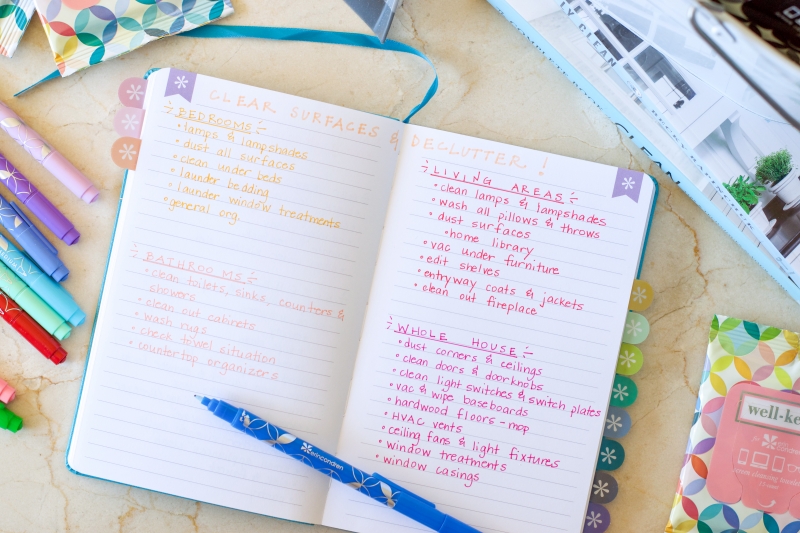 CLEAR SURFACES & DECLUTTER!
BEDROOMS:
• lamps & lampshades
• dust all surfaces
• clean under beds
• launder bedding
• launder window treatments
• general org.
BATHROOMS:
• clean toilets, sinks, counters &
showers
• clean out cabinets
• wash rugs
• check towel situation
• countertop organizers
LIVING AREAS:
• clean lamps & lampshades
• wash all pillows & throws
• dust surfaces
• home library
• vac under furniture
• edit shelves
• entryway coats & jackets
• clean out fireplace
WHOLE HOUSE:
• dust corners & ceilings
• clean doors & doorknobs
• clean light switches & switch plates
• vac & wipe baseboards
• hardwood floors - mop
• HVAC vents
• ceiling fans & light fixtures
• window treatments
• window casings
erincondren
well-ke